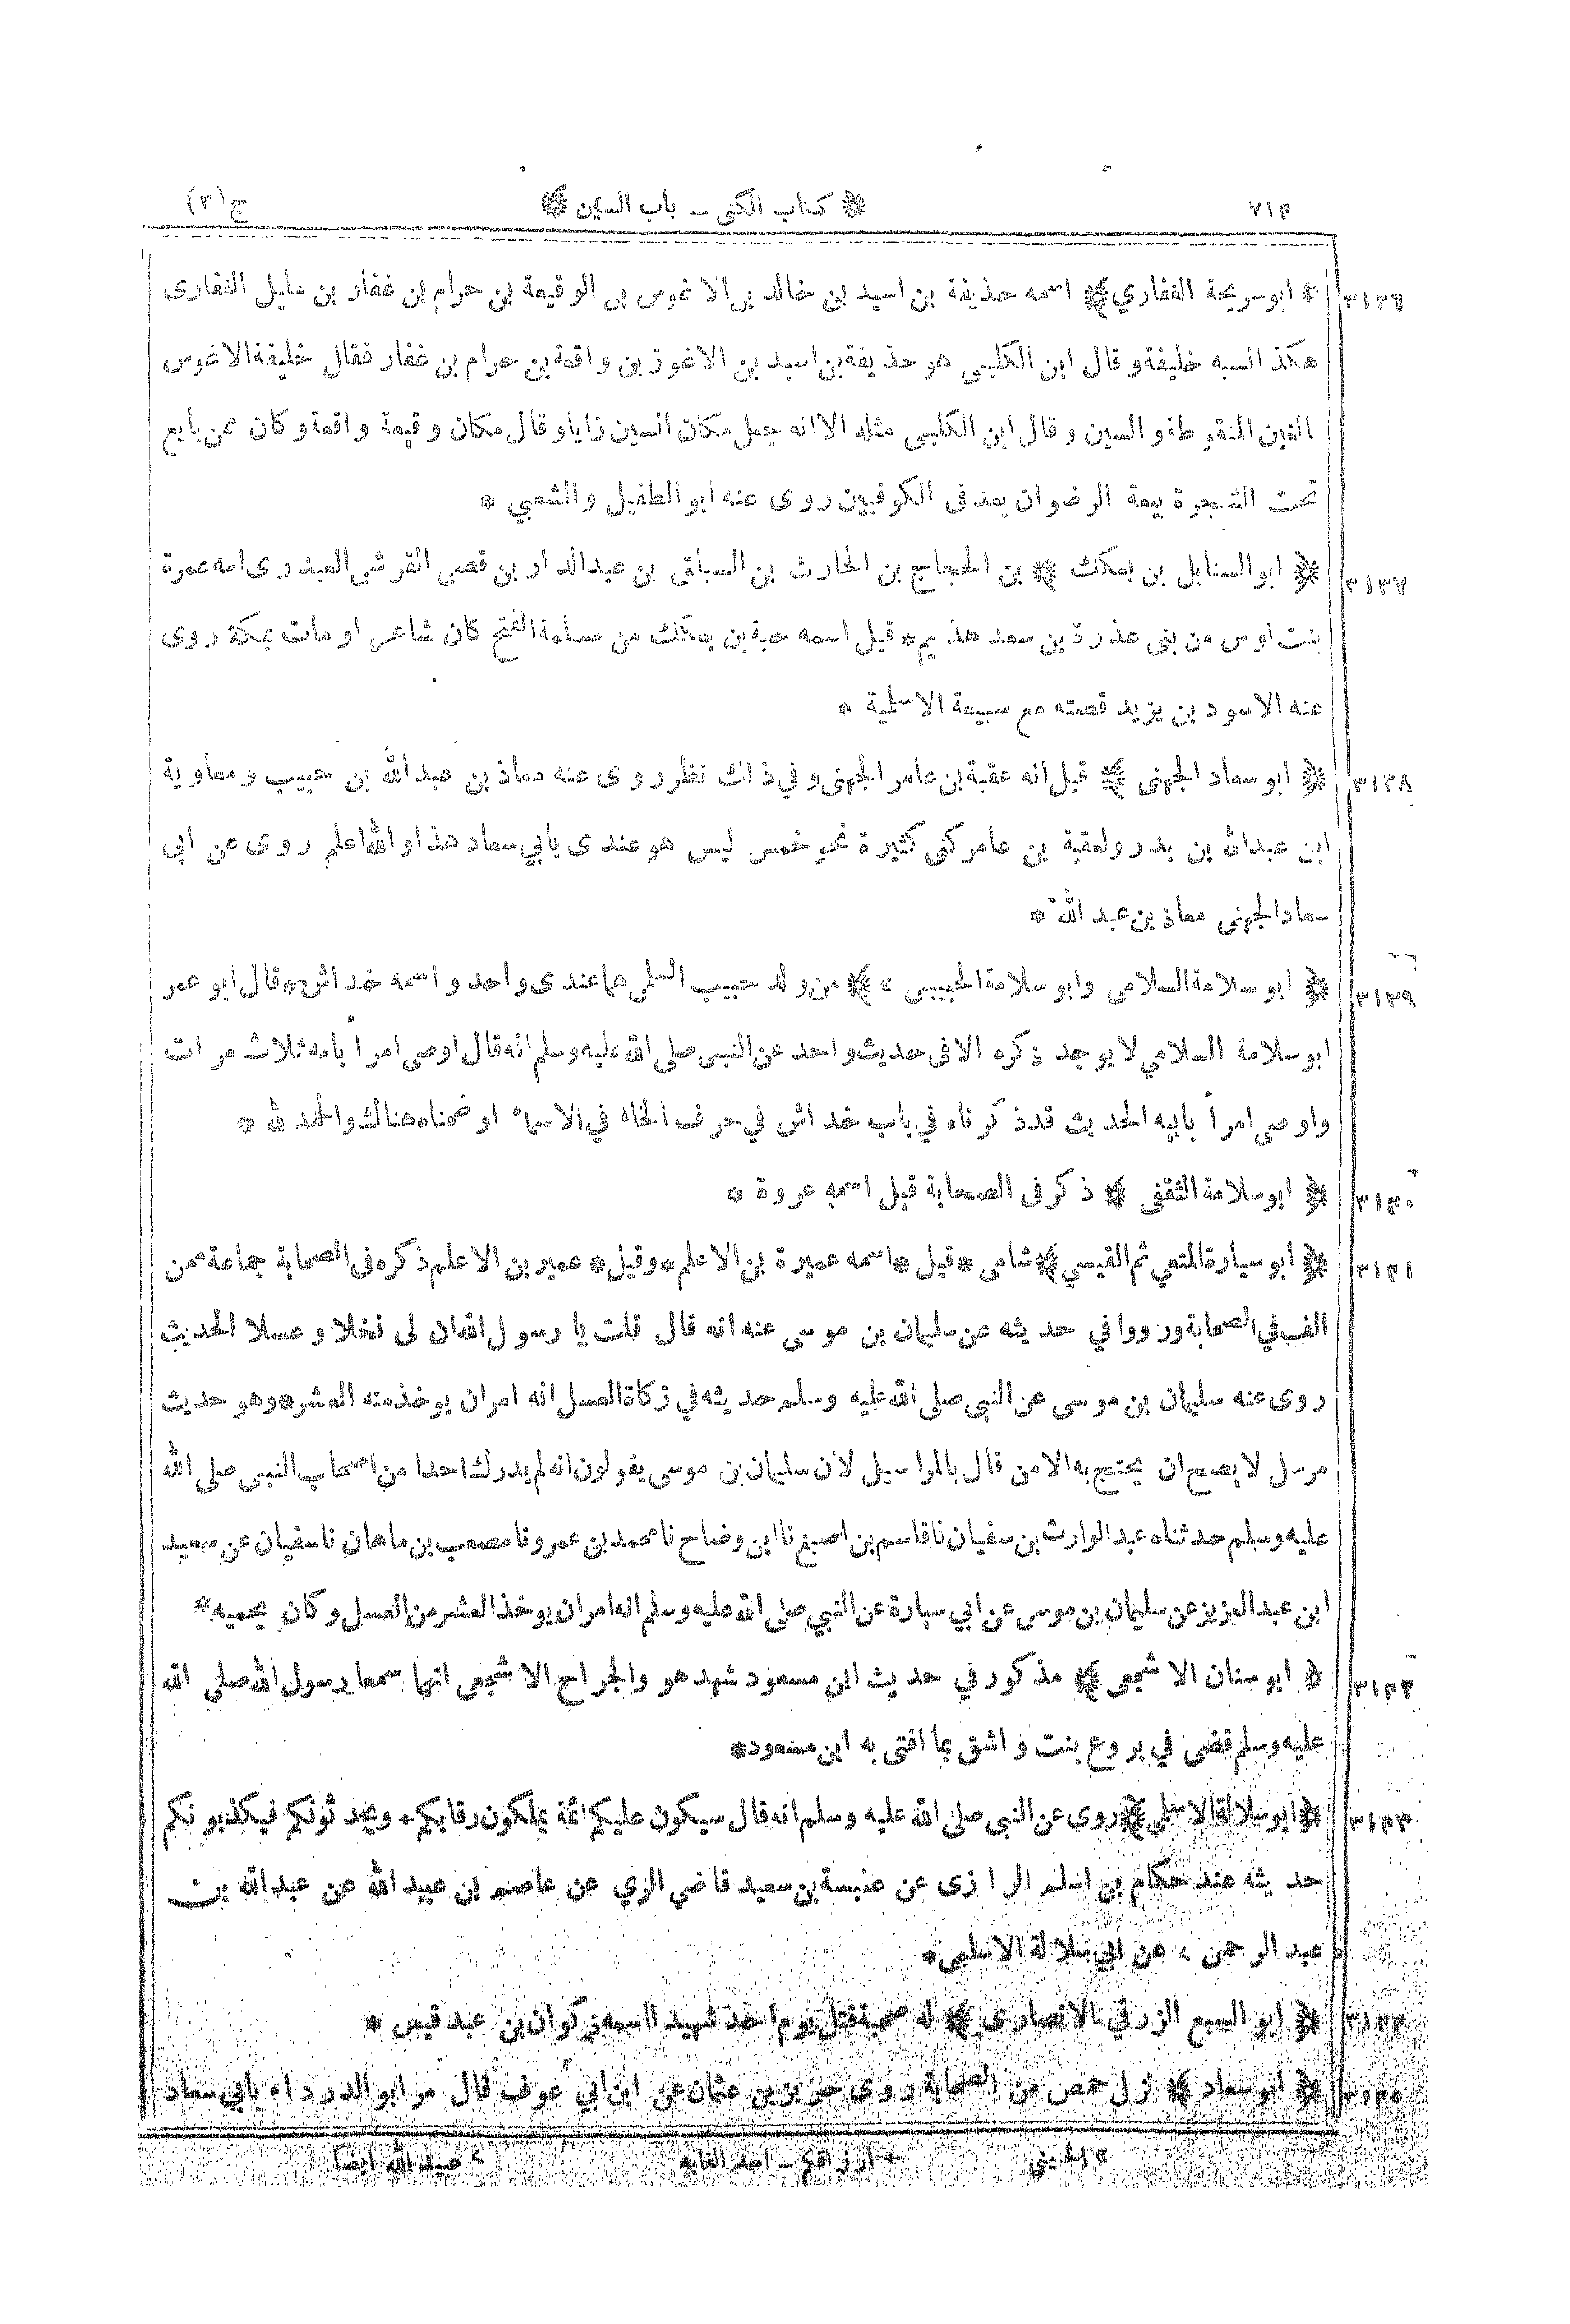 ٧١٣ ﴿ كتاب الكنى ــ باب السين ﴾ ج (٢)
٣١٣٦ * ابوسريحة الغفاري ﴾ اسمه حذيفة بن اسيد بن خالد بن الاغوس بن الوقيعة بن حرام بن غفار بن مليل الغفارى
هكذا نسبه خليفة و قال ابن الكلبى هو حذيفة بن اسيد بن الاغوز بن واقعة بن حرام بن غفار فقال خليفة الاغوس
الغين المنقوطة و السين و قال ابن الكلبى مثله الا انه جعل مكان السين زايا و قال مكان وقيعة واقعة و كان ممن بايع
تحت الشجرة بيعة الرضوان يعد فى الكوفيين روى عنه ابو الطفيل و الشعبي *
٣١٣٧ ﴿ ابو السنابل بن بعكك ﴾ بن الحجاج بن الحارث بن السباق بن عبد الدار بن قصى القرشي العبدرى امه عمرة
بنت اوس من بنى عذرة بن سعد هذيم * قيل اسمه حبة بن بعكك من مسلمة الفتح كان شاعرا و مات بمكة روى
عنه الاسود بن يزيد قصته مع سبيعة الاسلمية *
٣١٣٨ ﴿ ابو سعاد الجهنى ﴾ قيل انه عقبة بن عامر الجهنى و في ذلك نظر روى عنه معاذ بن عبد الله بن حبيب و معاوية
ابن عبد الله بن بدر و لعقبة بن عامر كنى كثيرة نحو خمس ليس هو عندى بابي سعاد هذا و الله اعلم روى عن ابى
سعاد الجهنى معاذ بن عبد الله *
٣١٣٩ ﴿ ابو سلامة السلامى و ابو سلامة الحبيبى * ﴾ من ولد حبيب السلمى هما عندى واحد و اسمه خداش * قال ابو عمر
ابو سلامة السلامي لا يوجد ذكره الا فى حديث واحد عن النبى صلى الله عليه و سلم انه قال اوصى امرأ بامه ثلاث مرات
و اوصى امرأ بابيه الحديث قد ذكرناه في باب خداش في حرف الخاء في الاسماء اوضحناه هناك و الحمد لله *
٣١٤٠ ﴿ ابو سلامة الثقفى ﴾ ذكر فى الصحابة قيل اسمه عروة *
٣١٤١ ﴿ ابو سيارة المتعي ثم القيسي ﴾ شامى * قيل * اسمه عميرة بن الاعلم * و قيل * عمير بن الاعلم ذكره فى الصحابة جماعة ممن
الف في الصحابة و رووا في حديثه عن سليمان بن موسى عنه انه قال قلت يا رسول الله ان لى نخلا و عسلا الحديث
روى عنه سليمان بن موسى عن النبى صلى الله عليه و سلم حديثه في زكاة العسل انه امر ان يوخذ منه العشر * و هو حديث
مرسل لا يصح ان يحتج به الا من قال بالمراسيل لان سليمان بن موسى يقولون انه لم يدرك احدا من اصحاب النبى صلى الله
عليه و سلم حدثناه عبد الوارث بن سفيان نا قاسم بن اصبغ نا ابن وضاح نا محمد بن عمرو نا مصعب بن ماهان نا سفيان عن سعيد
ابن عبد العزيز عن سليمان بن موسى عن ابي سيارة عن النبي صلى الله عليه و سلم انه امر ان يوخذ العشر من العسل و كان يحميه *
٣١٤٢ ﴿ ابو سنان الاشجعى ﴾ مذكور في حديث ابن مسعود شهد هو و الجراح الاشجعى انهما سمعا رسول الله صلى الله
عليه و سلم قضى في بروع بنت واشق بما افتى به ابن مسعود *
٣١٤٣ ﴿ ابو سلالة الاسلمى ﴾ روى عن النبى صلى الله عليه و سلم انه قال سيكون عليكم ائمة يملكون رقابكم + و يحدثونكم فيكذبونكم
حديثه عند حكام بن اسلم الرازى عن عنبسة بن سعيد قاضي الري عن عاصم بن عبيد الله عن عبد الله بن
عبد الرحمن ، عن ابي سلالة الاسلمى *
٣١٤٤ ﴿ ابو السبع الزرقي الانصارى ﴾ له صحبة قتل يوم احد شهيدا اسمه ذكوان بن عبد قيس *
٣١٤٥ ﴿ ابو سعاد ﴾ نزل حمص من الصحابة روى حريز بن عثمان عن ابن ابي عوف قال مر ابو الدرداء بابي سعاد
* الحبيبي + ارزاقكم ــ اسد الغابه ، عبيد الله ايضا